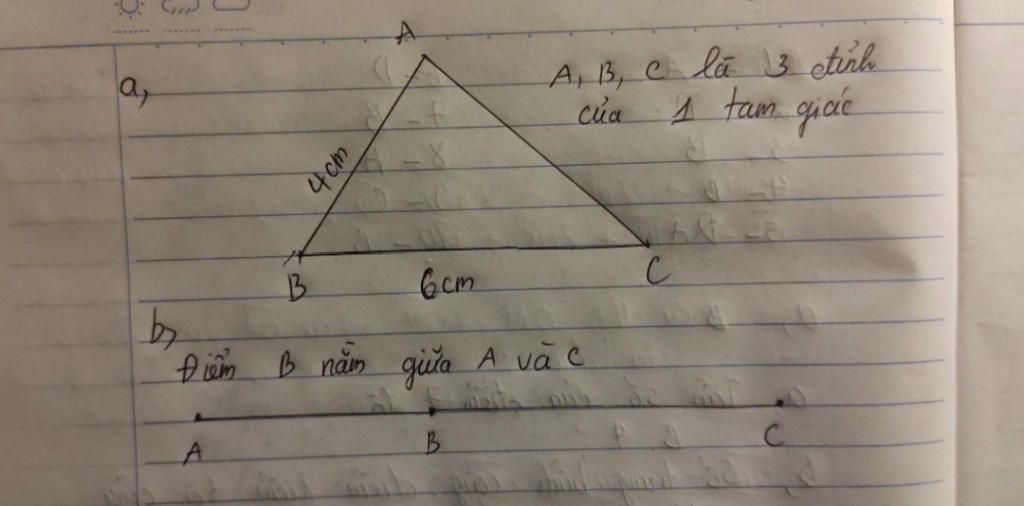 a,
A
A, B, C là 3 đỉnh
của 1 tam giác
4cm
B
6cm
C
b,
Điểm B nằm giữa A và C
A
B
C